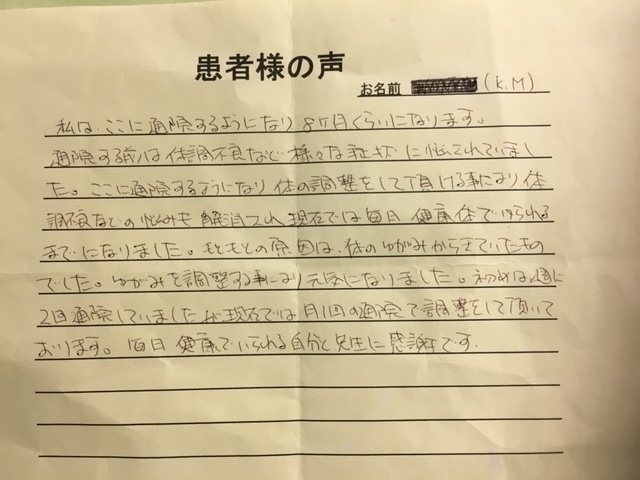 患者様の声
お名前 (K.M)
私は、ここに通院するようになり8ヶ月くらいになります。
通院する前は体調不良など様々な症状に悩まされていまし
た。ここに通院するようになり体の調整をして頂ける事により体
調不良などの悩みも解消され現在では毎日健康体でいられる
までになりました。もともとの原因は、体のゆがみからきていたもの
でした。ゆがみを調整する事により元気になりました。初めは週に
2回通院していましたが現在では月1回の通院で調整をして頂いて
おります。毎日健康でいられる自分と先生に感謝です。